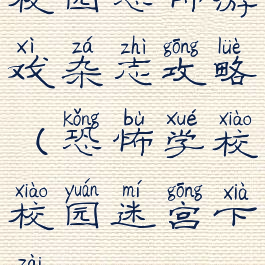 校园恐怖游
xì zá zhì gōng lüè
戏杂志攻略
kǒng bù xué xiào
(恐怖学校
xiào yuán mí gōng xià
校园迷宫下
zài